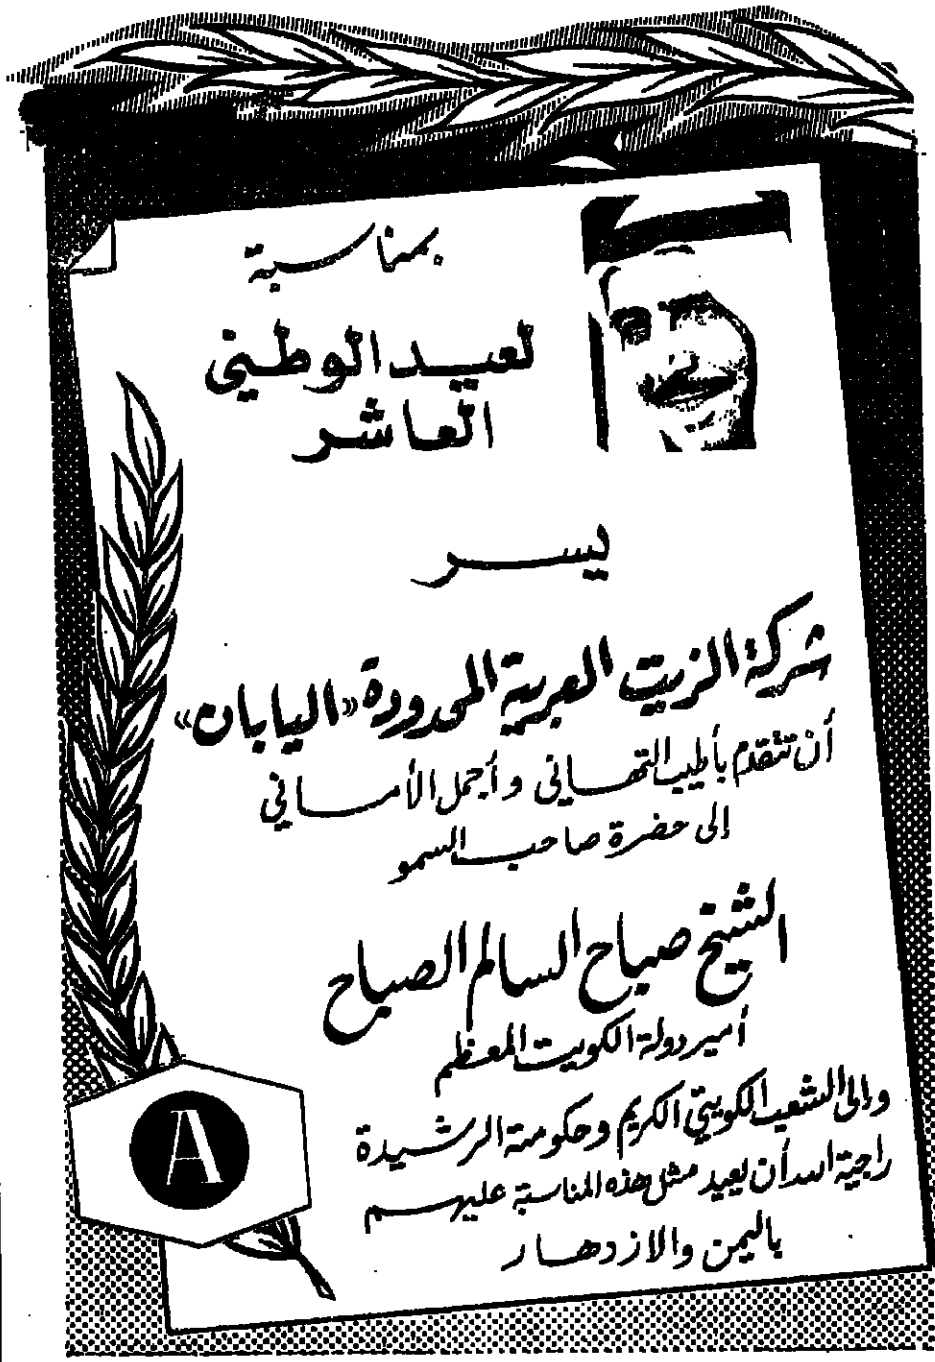 بمناسبة
لعيد الوطني
العاشر
يسر
شركة الزيت العربية المحدودة «اليابان»
أن تتقدم بأطيب التهاني وأجمل الأماني
إلى حضرة صاحب السمو
الشيخ صباح السالم الصباح
أمير دولة الكويت المعظم
وإلى الشعب الكويتي الكريم وحكومته الرشيدة
راجية الله أن يعيد مثل هذه المناسبة عليهم
باليمن والازدهار
A